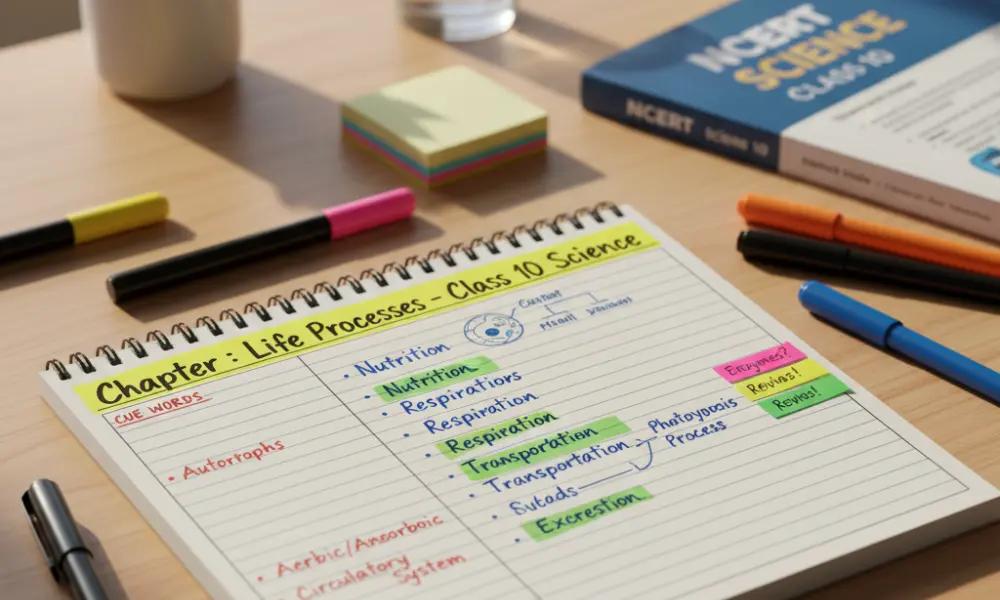 NCERT
SCIENCE
CLASS 10
NCERT
Chapter : Life Processes - Class 10 Science
CUE WORDS
• Autortaphs
• Aerbic/Ancorboic
Circulatory
System
• Nutrition
Nutrition
• Respiratiors
• Respiration
• Respiration
Transportation
• Transportation
Photoyoosis
Process
• Sutads
• Excrestion
Enzymes?
Revias!
Revios!